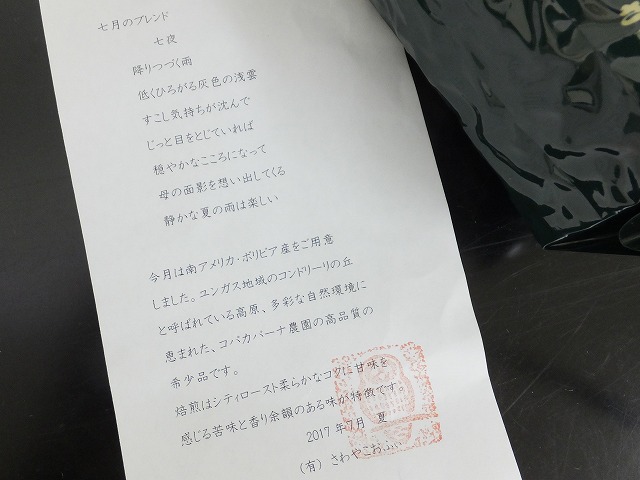 七月のブレンド
七夜
降りつづく雨
低くひろがる灰色の浅雲
すこし気持ちが沈んで
じっと目をとじていれば
穏やかなこころになって
母の面影を想い出してくる
静かな夏の雨は楽しい
今月は南アメリカ・ボリビア産をご用意
しました。ユンガス地域のコンドリーリの丘
と呼ばれている高原、多彩な自然環境に
恵まれた、コパカバーナ農園の高品質の
希少品です。
焙煎はシティロースト柔らかなコクに甘味を
感じる苦味と香り余韻のある味が特徴です。
2017年7月 夏
(有) さわやこおふぃ